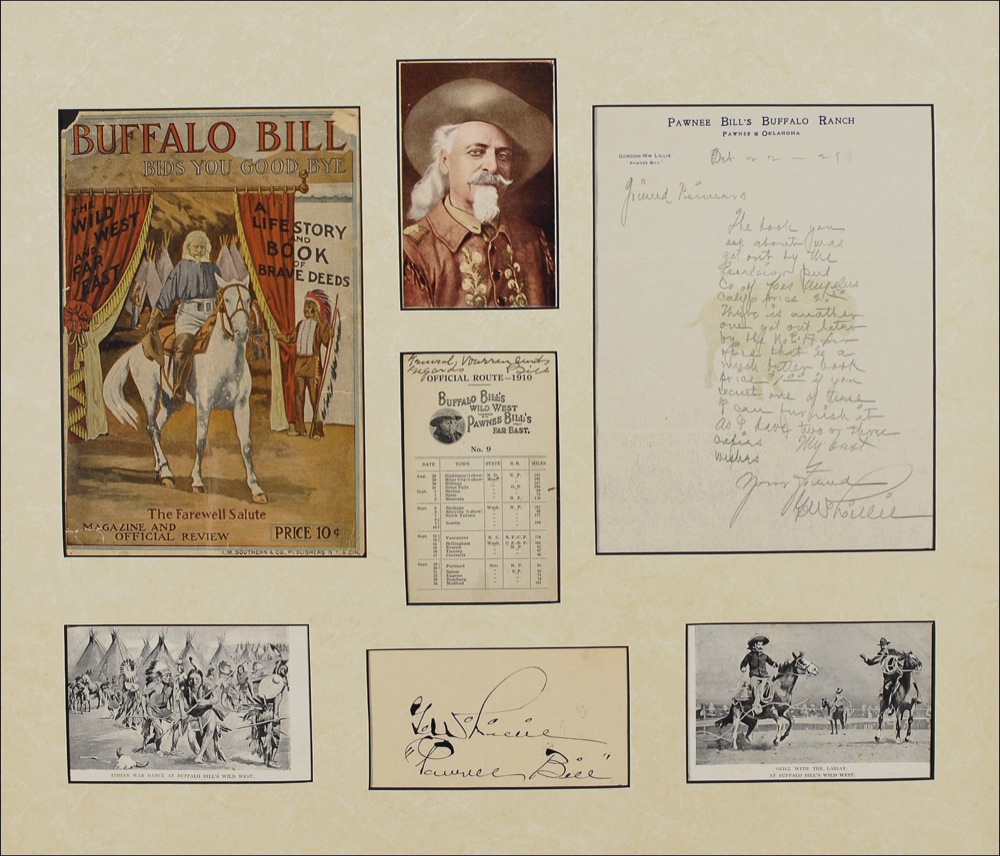 BUFFALO BILL
BIDS YOU GOOD BYE
THE
WILD
WEST
AND
FAR
EAST
A
LIFE STORY
AND
BOOK
OF
BRAVE DEEDS
The Farewell Salute
MAGAZINE AND
OFFICIAL REVIEW
PRICE 10¢
I. M. SOUTHERN & CO., PUBLISHERS N.Y. & CIN.
regards Bill
OFFICIAL ROUTE—1910
BUFFALO BILL'S
WILD WEST
PAWNEE BILL'S
FAR EAST.
No. 9
DATE TOWN STATE R. R. MILES
Great Falls
Helena
Butte
Missoula
Sept. Spokane Wash.
North Yakima
Seattle
Sept. Vancouver B. C.
Bellingham Wash.
Everett
Tacoma
Centralia
Sept. Portland Ore.
Salem
Eugene
Roseburg
Medford
PAWNEE BILL'S BUFFALO RANCH
PAWNEE OKLAHOMA
GORDON WM LILLIE
PAWNEE BILL
The book you
ask about was
got out by the
Co of Los Angelus
Calif price
There is another
one got out later
by the
is a
much better book
price if you
want one of these
I can furnish it
as I have two or three
copies My best
wishes
Your friend
G W Lillie
INDIAN WAR DANCE AT BUFFALO BILL'S WILD WEST.
G W Lillie
"Pawnee Bill"
SKILL WITH THE LARIAT.
AT BUFFALO BILL'S WILD WEST.